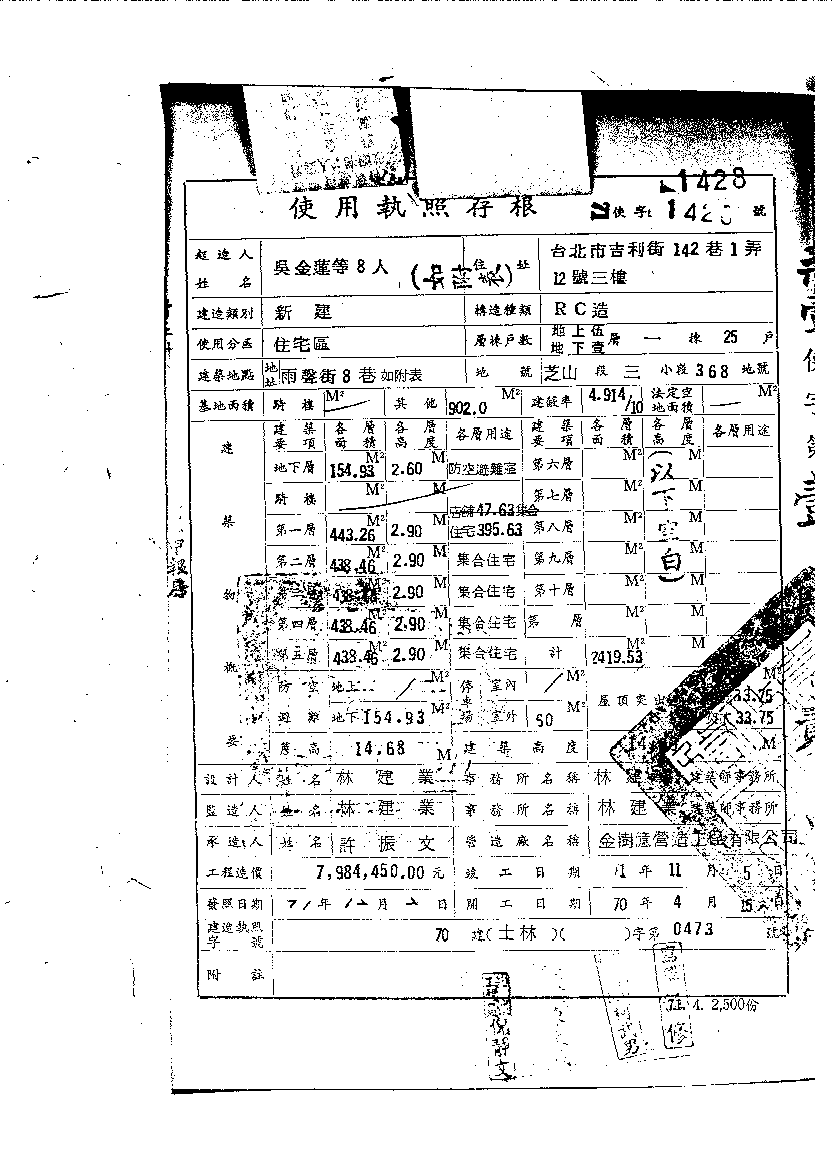 1428
使用執照存根 使字: 142 號
起造人姓名 吳金蓮等8人 住址 台北市吉利街142巷1弄12號三樓
建造類別 新建 構造種類 RC造
使用分區 住宅區 層棟戶數 地上伍層 地下壹層 一棟 25戶
建築地點 地址 雨聲街8巷如附表 地號 芝山段三小段368地號
基地面積 騎樓 M² 其他 902.0 M² 建蔽率 4.914/10 法定空地面積 M²
建築物概要 建築要項 各層面積 各層高度 各層用途 建築要項 各層面積 各層高度 各層用途
地下層 154.93 M² 2.60 M 防空避難室 第六層 M² M (以下空白)
騎樓 M² M 第七層 M² M
第一層 443.26 M² 2.90 M 店舖47.63集合住宅395.63 第八層 M² M
第二層 438.46 M² 2.90 M 集合住宅 第九層 M² M
438 M² 2.90 M 集合住宅 第十層 M² M
第四層 438.46 M² 2.90 M 集合住宅 第 層 M² M
第五層 438.46 M² 2.90 M 集合住宅 計 2419.53 M² M
防空避難 地上 M² 停車場 室內 M² 屋頂突出 33.75 M²
地下 154.93 M² 室外 50 M² 33.75 M²
簷高 14.68 M 建築高度 M
設計人 姓名 林建業 事務所名稱 林建業建築師事務所
監造人 姓名 林建業 事務所名稱 林建業建築師事務所
承造人 姓名 許振文 營造廠名稱 金樹意營造工程有限公司
工程造價 7,984,450.00元 竣工日期 71年11月5日
發照日期 71年12月2日 開工日期 70年4月15日
建造執照字號 70建(士林)( )字第0473號
附註
71. 4. 2,500份
倪靜文